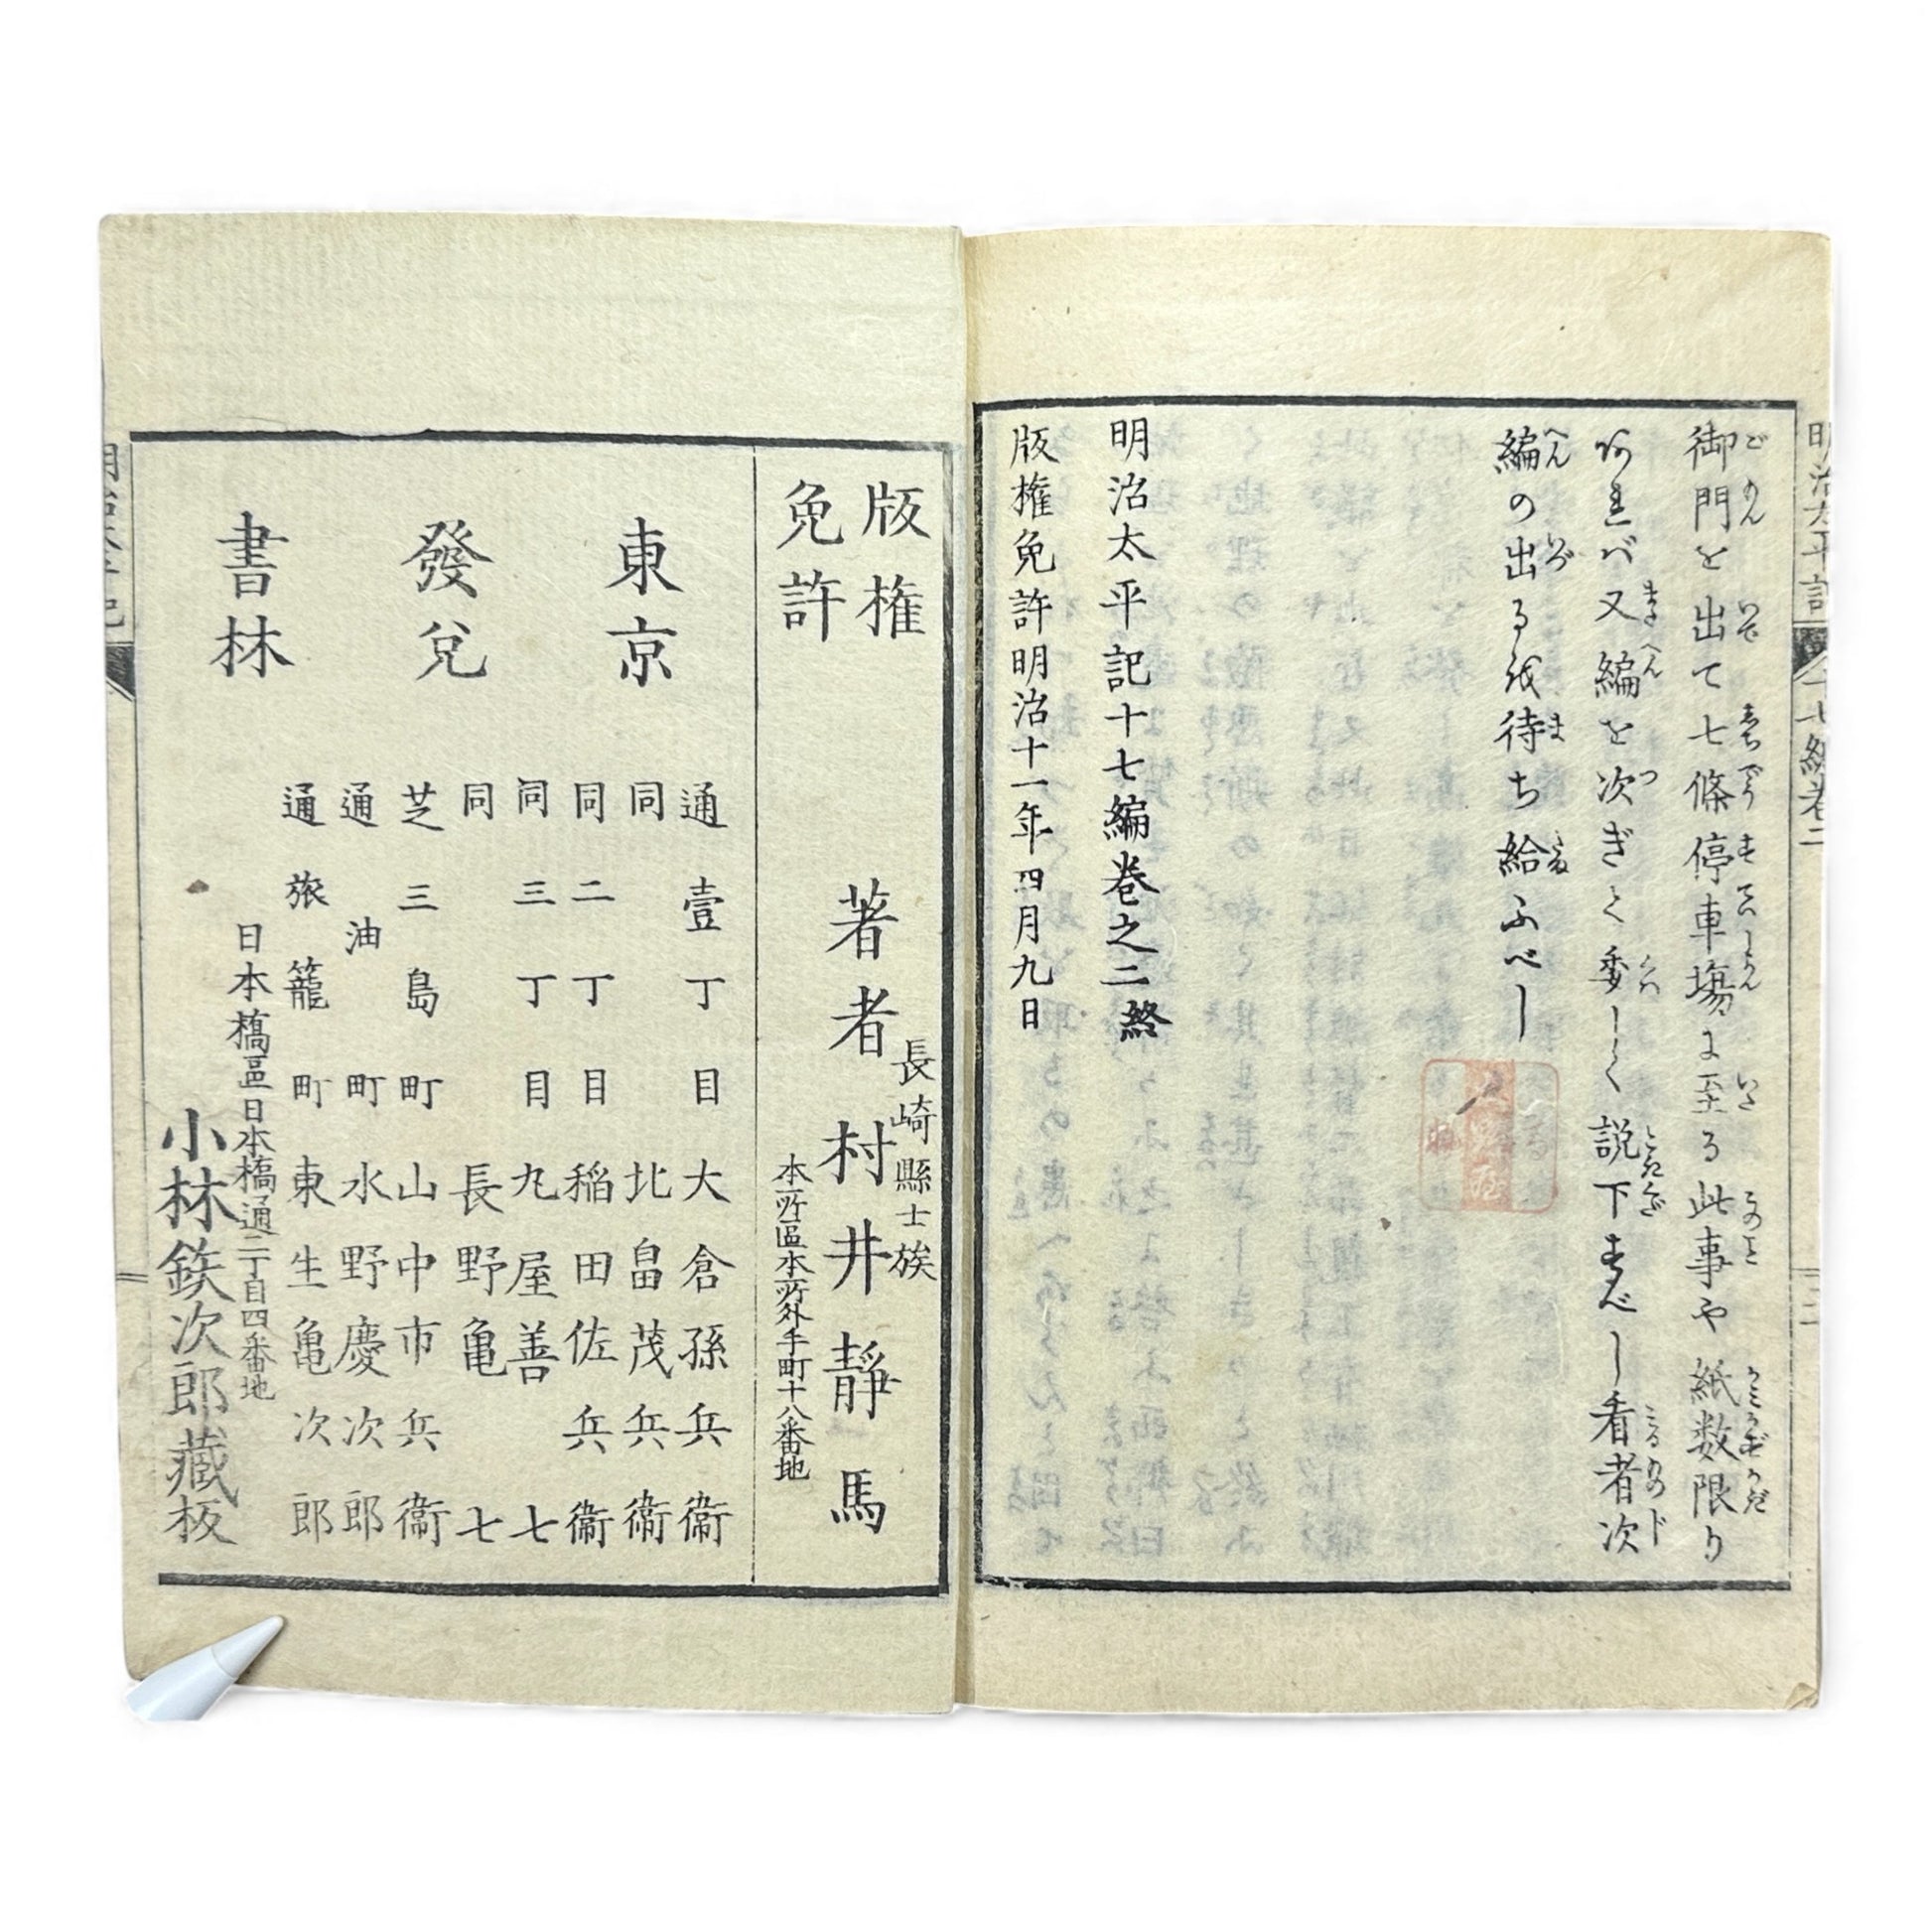 御門を出て七條停車場に至る此事や紙数限り
あれバ又編を次ぎて委しく説下すべし看者次
編の出る的待ち給ふべし
明治太平記十七編巻之二終
版権免許明治十一年四月九日
明治太平記
十七編巻二
版権
免許
長崎縣士族
著者 村井靜馬
本所區本所外手町十八番地
東京
發兌
書林
通壹丁目 大倉孫兵衞
同 北畠茂兵衞
同二丁目 稲田佐兵衞
同三丁目 丸屋善七
同 長野亀七
芝三島町 山中市兵衞
通油町 水野慶次郎
通旅籠町 東生亀次郎
日本橋區日本橋通二丁目四番地
小林鉄次郎藏板